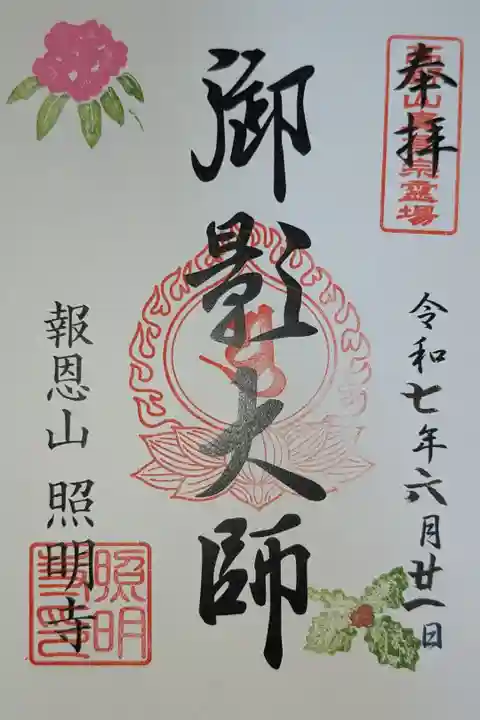 奉拝
高野山真言宗霊場
令和七年六月廿一日
御影大師
報恩山 照明寺
照明